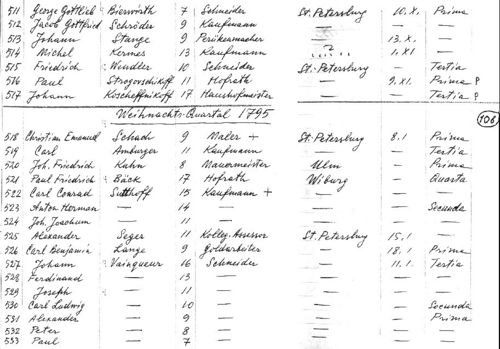 511 George Gottlieb Bierwirth 7 Schneider St. Petersburg 10. XI. Prima
512 Jacob Gottfried Schröder 9 Kaufmann — — —
513 Johann Stange 9 Perükenmacher — 13. XI. —
514 Michel Kermes 13 Kaufmann 1. XI —
515 Friedrich Wendler 10 Schneider St. Petersburg — Tertia
516 Paul Strogovschikoff 11 Hofrath — 9. XI. Prima P
517 Johann Koscheffnikoff 17 Haushofmeister — — Tertia P
Weihnachts-Quartal 1795 106
518 Christian Emanuel Schach 9 Maler + St. Petersburg 8.1 Prima
519 Carl Amburger 11 Kaufmann — — Tertia
520 Joh. Friedrich Kuhn 8 Mauermeister Ulm — Prima
521 Paul Friedrich Bäck 17 Hofrath Wiburg — Quarta
522 Carl Conrad Sutthoff 15 Kaufmann + — — —
523 Anton Herman — 14 — — — Secunda
524 Joh. Joachum — 11 — — — —
525 Alexander Seger 11 Colleg. Assessor St. Petersburg 15.1 —
526 Carl Benjamin Lange 9 Goldarbeiter — 18.1 Prima
527 Johann Vainqueur 16 Schneider — 11.1 Tertia
528 Ferdinand — 13 — — — —
529 Joseph — 11 — — — —
530 Carl Ludwig — 10 — — — Secunda
531 Alexander — 9 — — — Prima
532 Peter — 8 — — — —
533 Paul — 7 — — — —